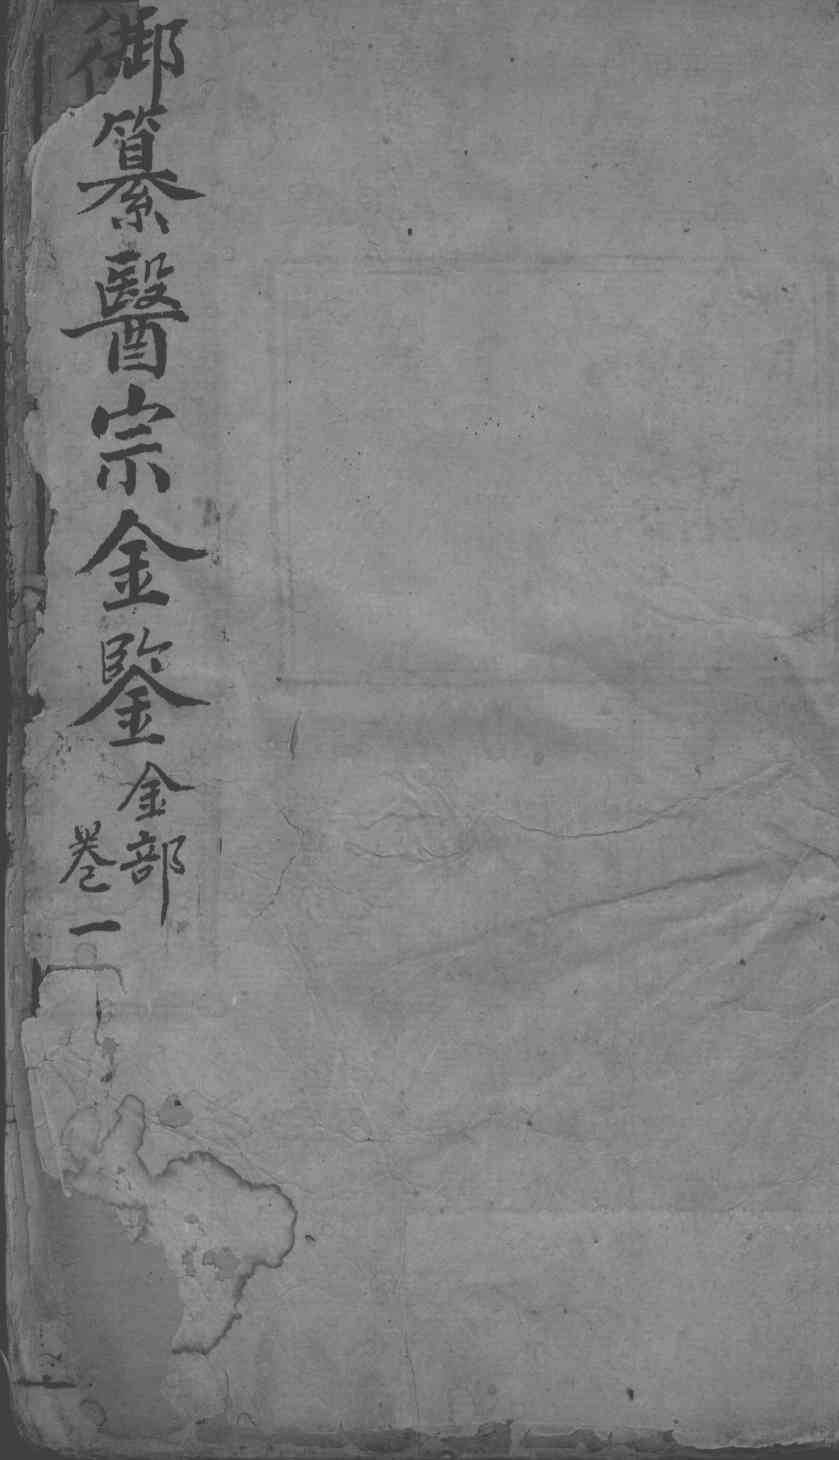 御纂醫宗金鑒
金部
卷一